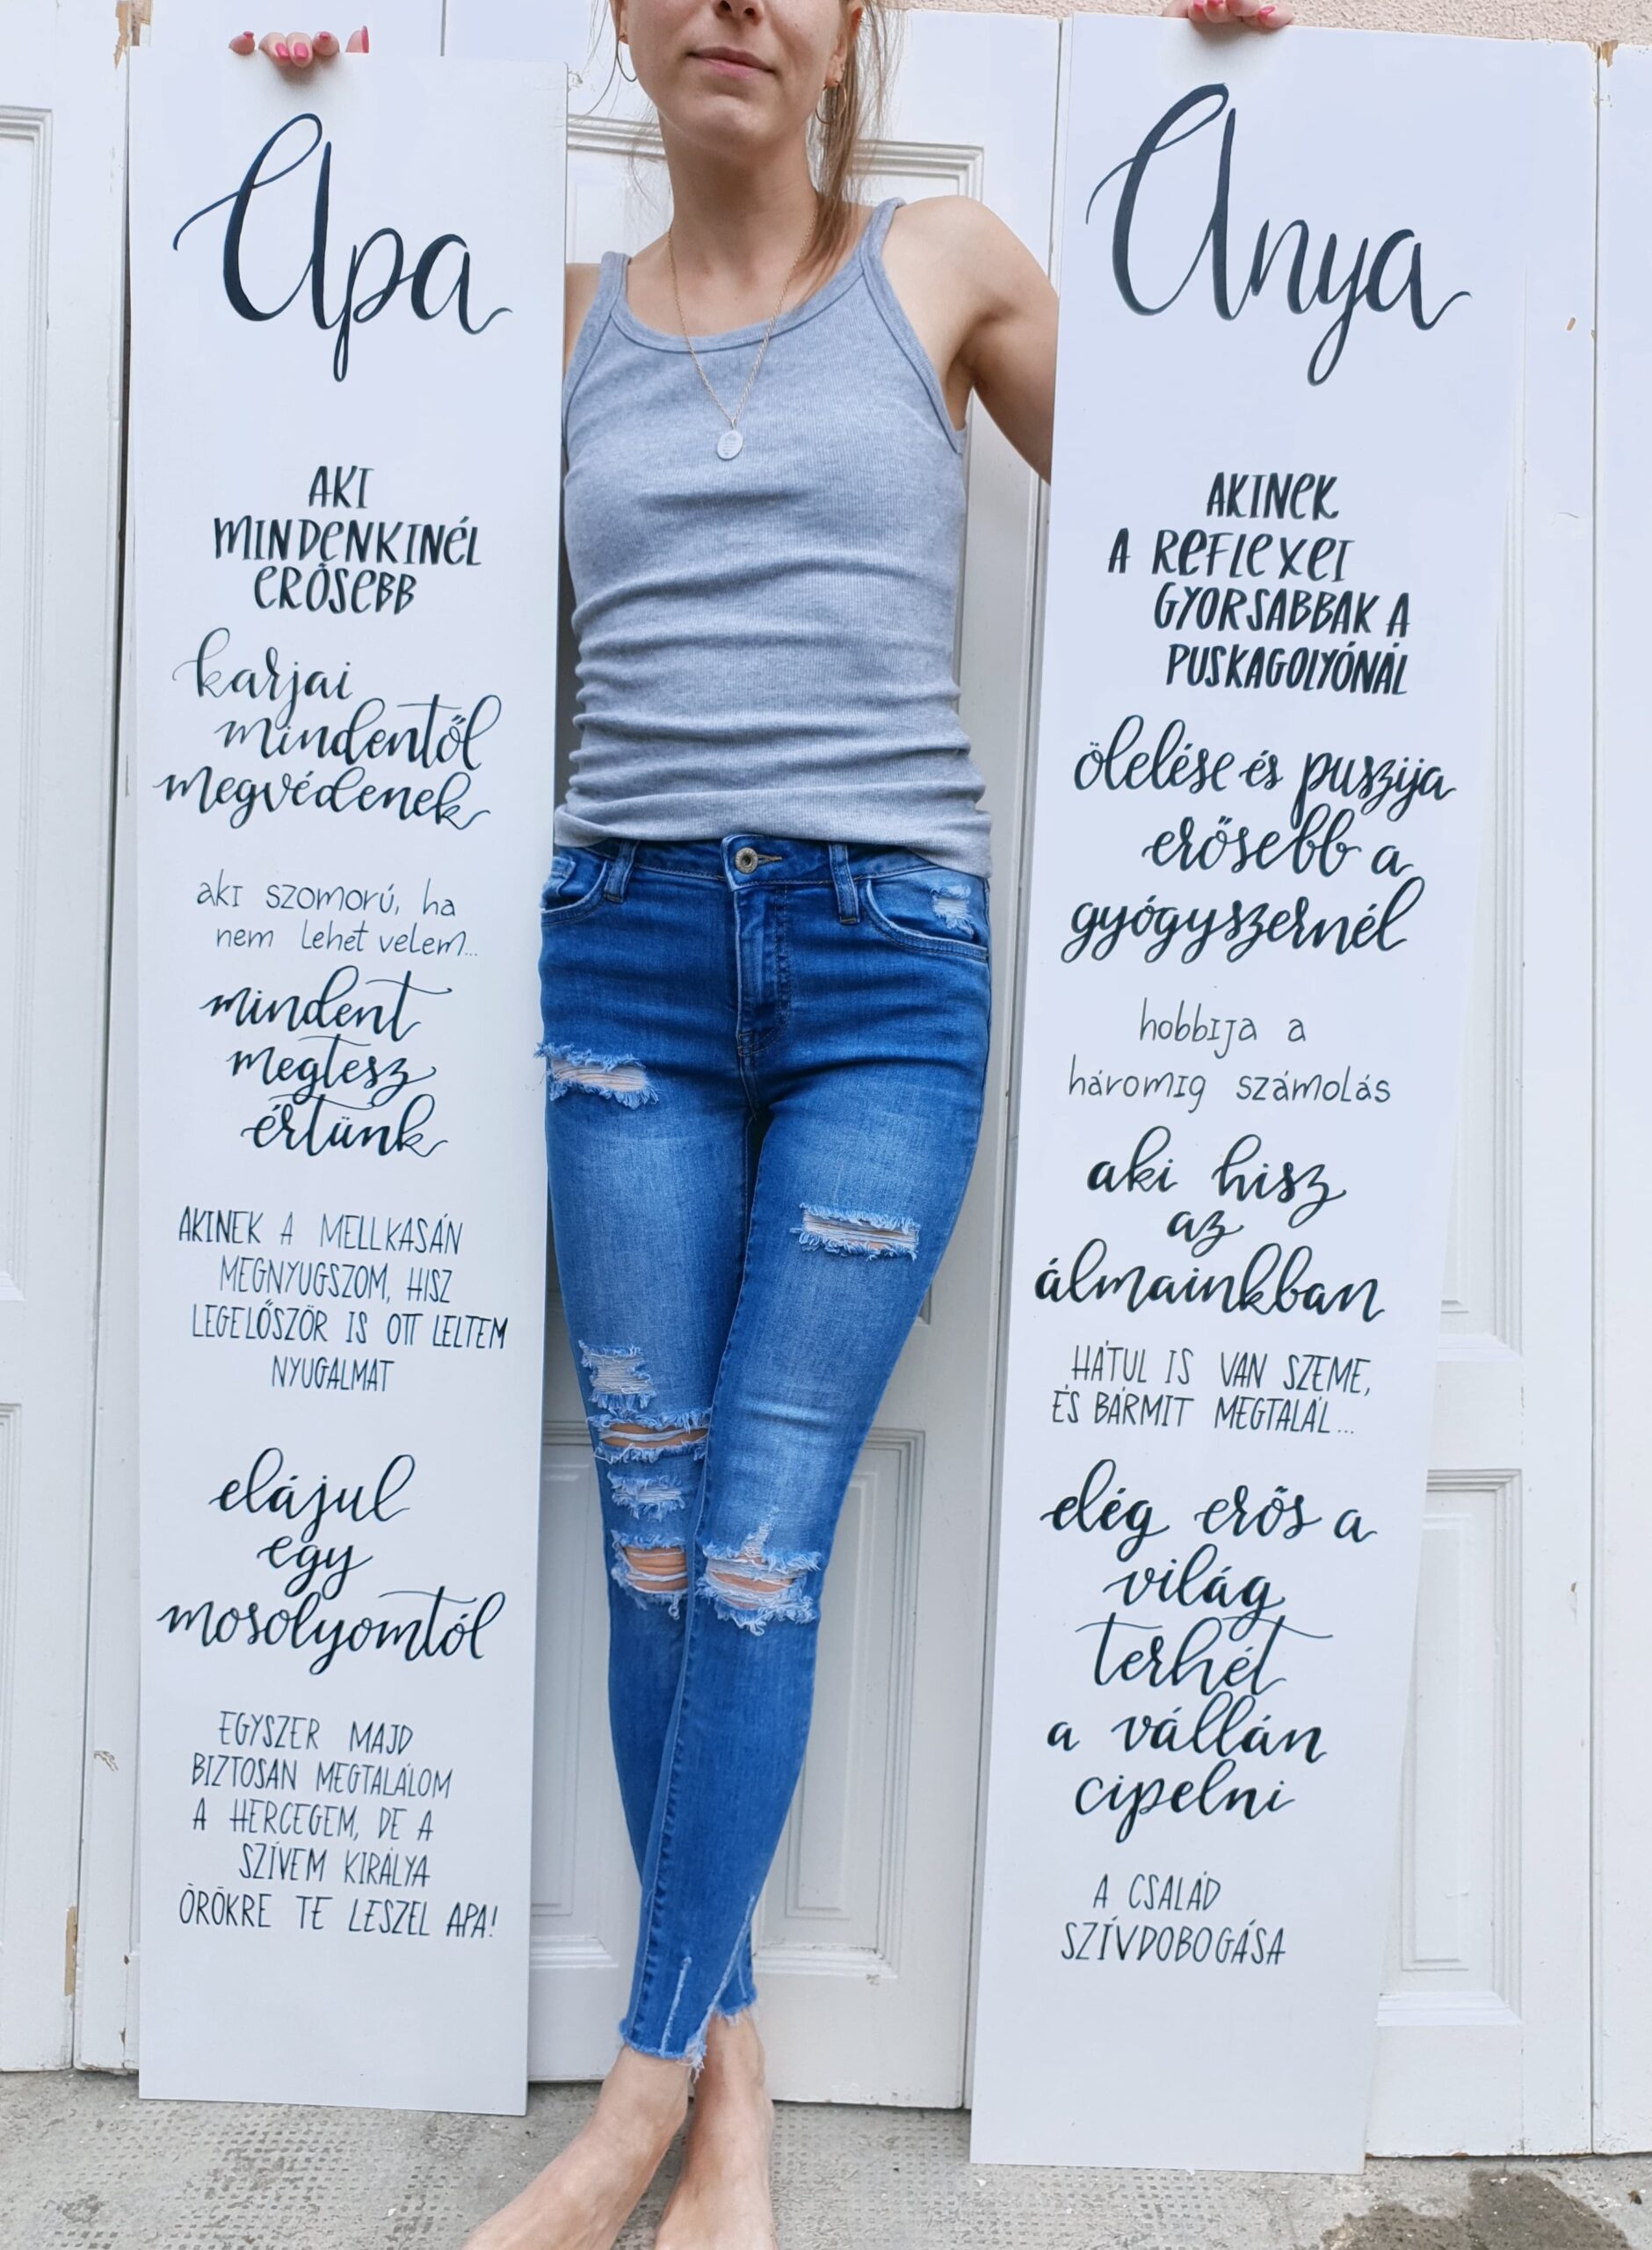 Apa
AKI
MINDENKINÉL
ERŐSEBB
karjai
mindentől
megvédenek
aki szomorú, ha
nem lehet velem...
mindent
megtesz
értünk
AKINEK A MELLKASÁN
MEGNYUGSZOM, HISZ
LEGELŐSZÖR IS OTT LELTEM
NYUGALMAT
elájul
egy
mosolyomtól
EGYSZER MAJD
BIZTOSAN MEGTALÁLOM
A HERCEGEM, DE A
SZÍVEM KIRÁLYA
ÖRÖKRE TE LESZEL APA!
Anya
AKINEK
A REFLEXEI
GYORSABBAK A
PUSKAGOLYÓNÁL
ölelése és puszija
erősebb a
gyógyszernél
hobbija a
háromig számolás
aki hisz
az
álmainkban
HÁTUL IS VAN SZEME,
ÉS BÁRMIT MEGTALÁL...
elég erős a
világ
terhét
a vállán
cipelni
A CSALÁD
SZÍVDOBOGÁSA